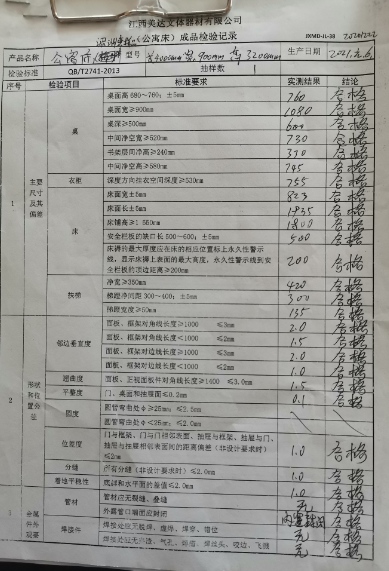 江西美达文体器材有限公司
(公寓床) 成品检验记录
JXMD-JL-38
产品名称 公寓床 型号 长4000mm 宽900mm 高3200mm 生产日期
检验标准 QB/T2741-2013 抽样数
序号 检验项目 标准要求 实测结果 结论
1 主要尺寸及其偏差
桌 桌面高 680~760; ±5mm 760 合格
桌面宽≥900mm 1080 合格
桌深≥500mm 600 合格
中间净空宽≥520mm 730 合格
书架层间净高≥240mm 330 合格
中间净空高≥580mm 745 合格
衣柜 深度方向挂衣空间深度≥530mm 755 合格
床 床面宽±5mm 823 合格
床面长±5mm 1935 合格
床铺高≥1 500mm 1800 合格
安全栏板的缺口长 500~600; ±5mm 500 合格
床褥的最大厚度应在床的相应位置标上永久性警示线,显示床褥上表面的最大高度,永久性警示线到安全栏板的顶边距离≥200mm 200 合格
扶梯 净宽≥350mm 420 合格
梯蹬净间距 300~400; ±5mm 300 合格
梯蹬宽度≥50mm 135 合格
2 形状和位置公差
邻边垂直度 面板、框架对角线长度≥1000 ≤3mm 2.0 合格
面板、框架对角线长度<1000 ≤2mm 1.5 合格
面板、框架对边线长度≥1000 ≤3mm 2.0 合格
面板、框架对边线长度<1000 ≤2mm 1.0 合格
翘曲度 面板、正视面板件对角线长度≥1400 ≤3.0mm 1.5 合格
平整度 门、桌面和抽屉面≤0.2mm 0.1 合格
圆度 圆管弯曲处φ≥25mm; ≤2.5mm
圆管弯曲处φ<25mm; ≤2.0mm
位差度 门与框架、门与门相邻表面、抽屉与框架、抽屉与门、抽屉与抽屉相邻表面间的距离偏差(非设计要求时)≤2mm 1.0 合格
分缝 所有分缝(非设计要求时)≤2.0mm 1.0 合格
着地平稳性 底脚和水平面的差值≤2.0mm 1.0 合格
3 金属件外观要求
管材 管材应无裂缝、叠缝 无 合格
外露管口端面应封闭 合格
焊接件 焊接处应无脱焊、虚焊、焊穿、错位 无 合格
焊接处应无夹渣、气孔、焊瘤、焊丝头、咬边、飞溅 无 合格